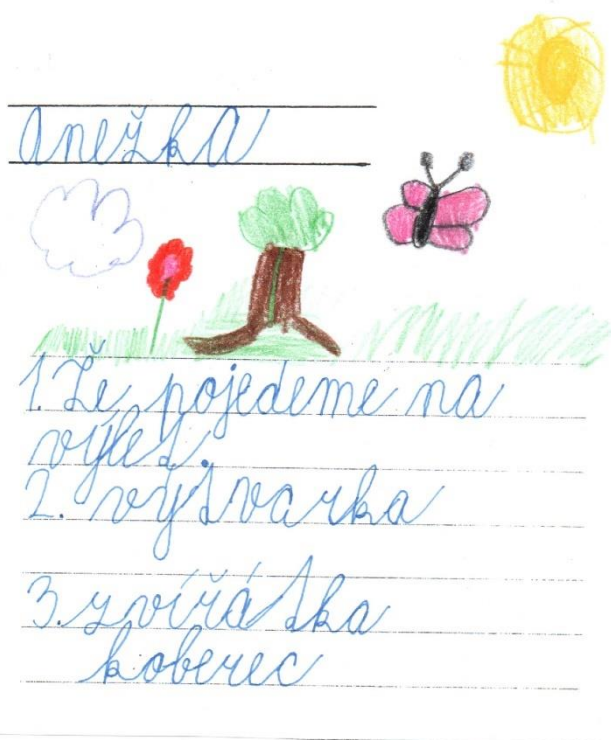 Anežka
1. Že pojedeme na
výlet.
2. výtvarka
3. zvířátka
koberec